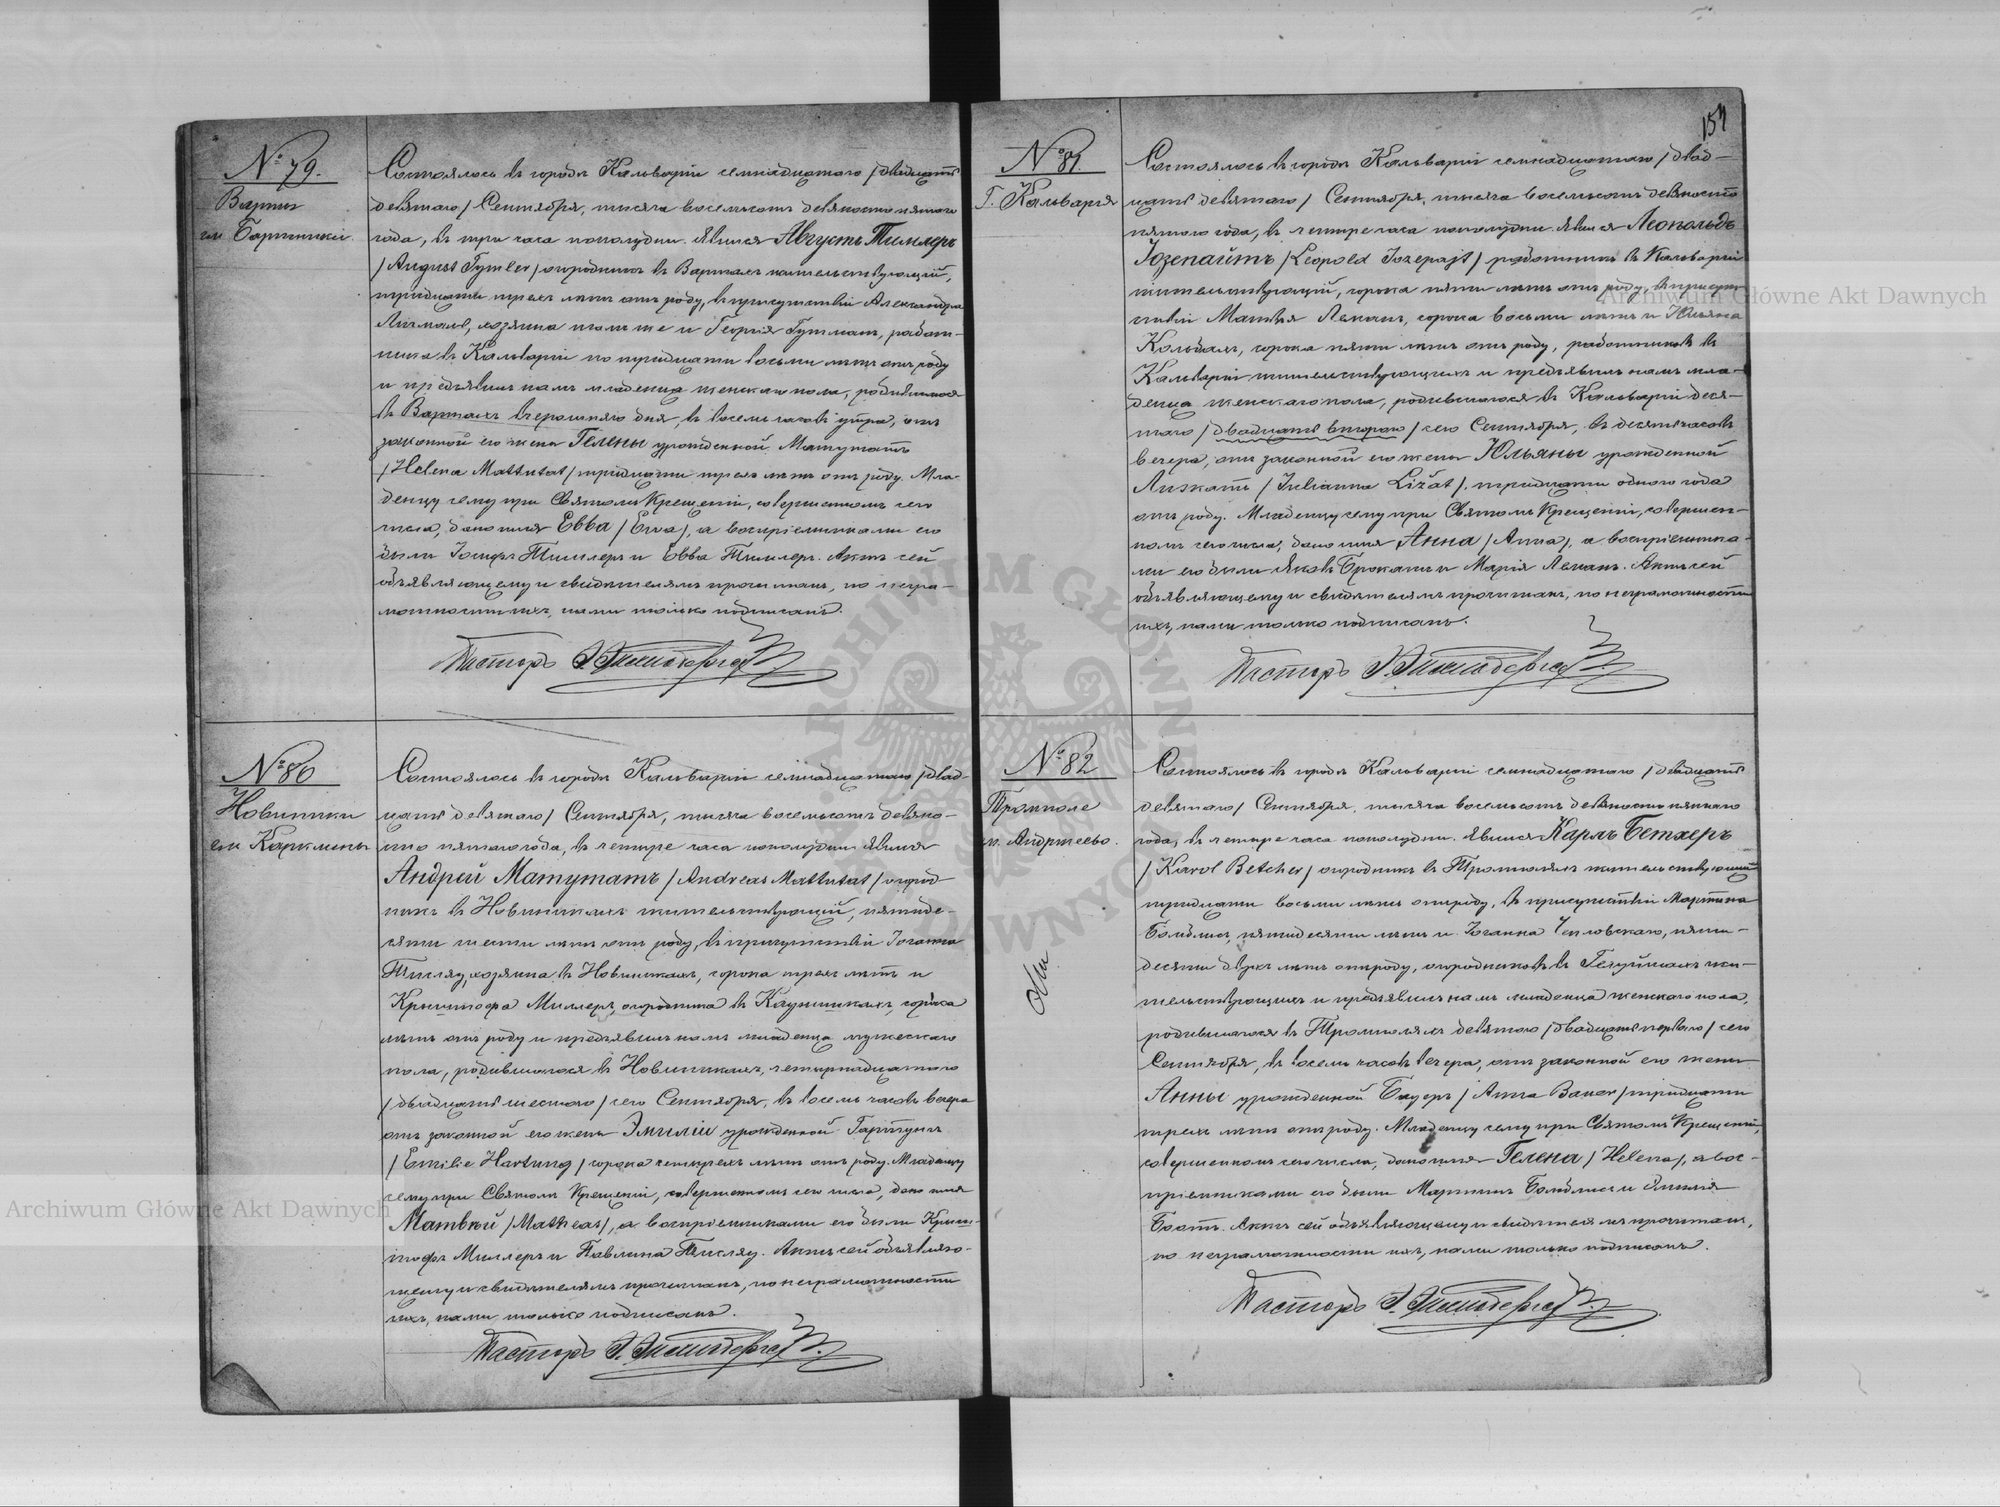 № 79.
Варты
гм. Бартники
Состоялось въ городѣ Кальваріи семнадцатаго /двадцать
девятаго/ Сентября, тысяча восемьсотъ девяносто пятаго
года, въ три часа пополудни. Явился Августъ Тимлеръ
/August Tymler/ огородникъ въ Вартахъ жительствующій,
тридцати трехъ лѣтъ отъ роду, въ присутствіи Александра
хозяина тамъ же и Георгія Гутманъ, работ-
ника въ Кальваріи по тридцати восьми лѣтъ отъ роду
и предъявилъ намъ младенца женскаго пола, родившагося
въ Вартахъ вчерашняго дня, въ восемь часовъ утра, отъ
законной его жены Гелены урожденной Матутатъ
/Helena Mattutat/ тридцати трехъ лѣтъ отъ роду. Мла-
денцу сему при Святомъ Крещеніи, совершенномъ сего
числа, дано имя Евва /Ewa/, а воспріемниками его
были Іосифъ Тимлеръ и Евва Тимлеръ. Актъ сей
объявляющему и свидѣтелямъ прочитанъ, по негра-
мотности ихъ, нами только подписанъ.
Пасторъ
№ 80
Новиники
гм. Каркмены
Состоялось въ городѣ Кальваріи семнадцатаго /двад-
цать девятаго/ Сентября, тысяча восемьсотъ девяно-
сто пятаго года, въ четыре часа пополудни. Явился
Андрей Матутатъ /Andreas Mattutat/ огород-
никъ въ Новиникахъ жительствующій, пятиде-
сяти шести лѣтъ отъ роду, въ присутствіи Іоганна
хозяина въ Новиникахъ, сорока трехъ лѣтъ и
Крыштофа Миллеръ, огородника въ сорока
лѣтъ отъ роду и предъявилъ намъ младенца мужескаго
пола, родившагося въ Новиникахъ, четырнадцатаго
/двадцать шестого/ сего Сентября, въ восемь часовъ вечера
отъ законной его жены Эмиліи урожденной Гартунгъ
/Emilie Hartung/ сорока четырехъ лѣтъ отъ роду. Младенцу
сему при Святомъ Крещеніи, совершенномъ сего числа, дано имя
Матвѣй /Matheas/, а воспріемниками его были Крыш-
тофъ Миллеръ и Павлина Актъ сей объявляю-
щему и свидѣтелямъ прочитанъ, по неграмотности
ихъ, нами только подписанъ.
Пасторъ
157
№ 81.
Г. Кальварія
Состоялось въ городѣ Кальваріи семнадцатаго /двад-
цать девятаго/ Сентября, тысяча восемьсотъ девяносто
пятаго года, въ четыре часа пополудни. Явился Леопольдъ
Іозепайтъ /Leopold Jozepajt/ работникъ въ Кальваріи
жительствующій, сорока пяти лѣтъ отъ роду, въ присут-
ствіи Матвѣя Леманъ, сорока восьми лѣтъ и Юльяна
сорока пяти лѣтъ отъ роду, работниковъ въ
Кальваріи жительствующихъ и предъявилъ намъ мла-
денца женскаго пола, родившагося въ Кальваріи деся-
таго /двадцать второго/ сего Сентября, въ десять часовъ
вечера, отъ законной его жены Юльяны урожденной
Лизжатъ /Julianna Liżat/, тридцати одного года
отъ роду. Младенцу сему при Святомъ Крещеніи, совершен-
номъ сего числа, дано имя Анна /Anna/, а воспріемника-
ми его были Яковъ и Марія Леманъ. Актъ сей
объявляющему и свидѣтелямъ прочитанъ, по неграмотности
ихъ, нами только подписанъ.
Пасторъ
№ 82
Тромполе
гм. Андржеево.
Состоялось въ городѣ Кальваріи семнадцатаго /двадцать
девятаго/ Сентября, тысяча восемьсотъ девяносто пятаго
года, въ четыре часа пополудни. Явился Карлъ Бетхеръ
/Karol Betcher/ огородникъ въ Тромполяхъ жительствующій
тридцати восьми лѣтъ отъ роду, въ присутствіи Мартина
пятидесяти лѣтъ и Іоганна пяти-
десяти двухъ лѣтъ отъ роду, огородниковъ въ жи-
тельствующихъ и предъявилъ намъ младенца женскаго пола,
родившагося въ Тромполяхъ девятаго /двадцать перваго/ сего
Сентября, въ восемь часовъ вечера, отъ законной его жены
Анны урожденной Бауеръ /Anna Bauer/ тридцати
трехъ лѣтъ отъ роду. Младенцу сему при Святомъ Крещеніи,
совершенномъ сего числа, дано имя Гелена /Helena/, а вос-
пріемниками его были Мартинъ и Эмилія
Актъ сей объявляющему и свидѣтелямъ прочитанъ,
по неграмотности ихъ, нами только подписанъ.
Пасторъ
Archiwum Główne Akt Dawnych
Archiwum Główne Akt Dawnych
ARCHIWUM GŁÓWNE AKT DAWNYCH